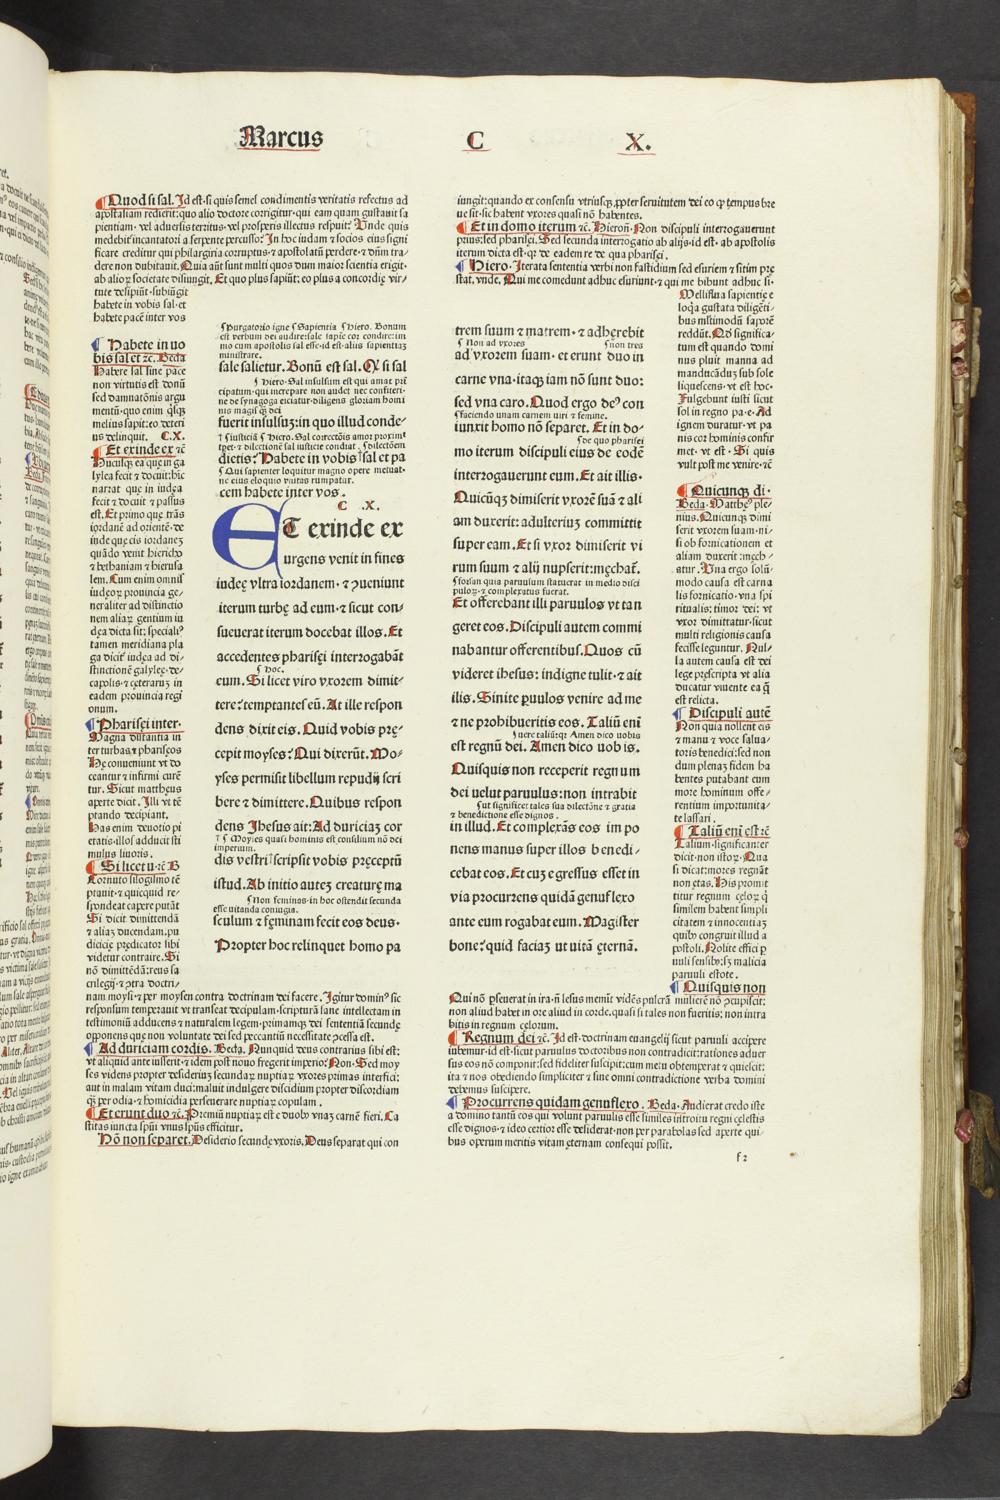 Marcus C X.
¶ Quod si sal. Id est·si quis semel condimentis veritatis refectus ad
apostasiam redierit:quo alio doctore corrigitur·qui eam quam gustauit sa
pientiam·vel aduersis territus·vel prosperis illectus respuit? Unde quis
medebit̄ incantatori a serpente percusso? In hoc iudam ⁊ socios eius signi
ficare creditur qui philargiria corruptus·⁊ apostolatū perdere·⁊ dn̄m tra-
dere non dubitauit. Quia aūt sunt multi quos dum maior scientia erigit·
ab alioꝝ societate disiungit. Et quo plus sapiūt: eo plus a concordię vir-
tute desipiūt·subiūgit
habete in vobis sal·et
habete pacē inter vos
¶ Habete in uo
bis sal et ⁊c. Beda
Habere sal sine pace
non virtutis est donū
sed damnatōnis argu
mentū·quo enim q̄lisq;
melius sapit:eo deteri
us delinquit. C.X.
¶ Et exinde ex ⁊c̄
Hucusq; ea que in ga
lylea fecit ⁊ docuit:hic
narrat que in iudęa
fecit ⁊ docuit ⁊ passus
est. Et primo que trās
iordanē ad orientē·de
inde que cis iordanez
quādo venit hiericho
⁊ bethaniam ⁊ hierusa
lem. Cum enim omnis
iudęoꝝ prouincia ge-
neraliter ad distinctio
nem aliaꝝ gentium iu
dęa dicta sit: specialiꝰ
tamen meridiana pla
ga dicit̄ iudęa ad di-
stinctionē galylęę·de-
capolis·⁊ ceteraruz in
eadem prouincia regi
onum.
¶ Pharisęi inter·
Magna distantia in
ter turbas ⁊ phariseos
Hę conueniunt vt do
ceantur ⁊ infirmi curē
tur. Sicut mattheus
aperte dicit. Illi vt tē
ptando decipiant.
Has enim deuotio pi
etatis·illos adducit sti
mulus liuoris.
¶ Si licet u·⁊c̄ B
Cornuto silogismo tē
ptauit·⁊ quicquid re-
spondeat capere putāt
Si dicit dimittendā
⁊ aliaz ducendam.pu
dicicię prędicator sibi
videtur contraire. Si
nō dimittēdā:reus sa
crilegij·⁊ ꝯtra doctri-
nam moysi·⁊ per moysen contra doctrinam dei facere. Igitur dominꝰ sic
responsum temperauit vt transeat decipulam·scripturā sanc intellectam in
testimoniū adducens ⁊ naturalem legem·primamq; dei sententiā secundę
opponens quę non voluntate dei sed peccantiū necessitate ꝯcessa est.
¶ Ad duriciam cordis. Beda. Nunquid deus contrarius sibi est:
vt aliquid ante iusserit·⁊ idem post nouo fregerit imperio? Non. Sed moy
ses videns propter desideriuz secundaꝝ nuptiaꝝ vxores primas interfici:
aut in malam vitam duci:maluit indulgere discidium propter discordiam
q̄ꝫ per odia·⁊ homicidia perseuerare nuptiaꝝ copulam.
¶ Et erunt duo ⁊c̄. Pręmiū nuptiaꝝ est e duobꝰ vnaz carnē fieri. Ca
stitas iuncta spūi vnus spūs efficitur.
Nōn separet. Desiderio secundę vxoris. Deus separat qui con
⸿ Purgatorio igne ⸿ Sapientia ⸿ Hiero. Bonum
est verbum dei audire:sale sapiē cor condire:im
mo cum apostolis sal esse·id est·aliis sapientiaz
ministrare.
sale salietur. Bonū est sal. Qꝭ si sal
⸿ Hiero·Sal insulsum est qui amat prī
cipatum·qui increpare non audet nec conteri-
ne de synagoga eiciatur·diligens gloriam homi
nis magis q̄ꝫ dei
fuerit insulsuz:in quo illud conde-
⸿ Iusticiā ⸿ Hiero. Sal correctōis amor proximi
tpet·⁊ dilectionē sal iusticie condiat. ⸿ Dilectōem
dietis? Habete in vobis sal et pa
⸿ Qui sapienter loquitur magno opere metuat·
ne eius eloquio vnitas rumpatur.
cem habete inter vos.
C .X.
ET exinde ex
urgens venit in fines
iudęę vltra iordanem·⁊ ꝯueniunt
iterum turbę ad eum·⁊ sicut con-
sueuerat iterum docebat illos. Et
accedentes pharisęi interrogabāt
⸿ hoc.
eum. Si licet viro vxorem dimit-
tere?temptantes eū. At ille respon
dens dixit eis. Quid vobis prę-
cepit moyses? Qui dixerūt. Mo-
yses permisit libellum repudij scri
bere ⁊ dimittere. Quibus respon
dens Ihesus ait: Ad duriciaz cor
⸿ Moyses quasi hominis est consilium nō dei
imperium.
dis vestri scripsit vobis pręceptū
istud. Ab initio autez creaturę ma
⸿ Non feminas·in hoc ostendit secunda
esse vitanda coniugia.
sculum ⁊ fęminam fecit eos deus·
Propter hoc relinquet homo pa
iungit:quando ex consensu vtriusq; ꝓpter seruitutem dei eo qꝭ tempus bre
ue sit·sic habent vxores quasi nō habentes.
¶ Et in domo iterum ⁊c̄. Hieron̄. Non discipuli interrogauerunt
prius:sed pharisęi. Sed secunda interrogatio ab alijs·id est·ab apostolis
iterum dicta est·qꝛ de eadem re de qua pharisęi.
¶ Hiero. Iterata sententia verbi non fastidium sed esuriem ⁊ sitim prę
stat.vnde. Qui me comedunt adhuc esuriunt·⁊ qui me bibunt adhuc si-
Melliflua sapientię e
loq̄a gustata diligēti-
bus ml̄timodū saporē
reddūt. Nō significa-
tum est quando domi
nus pluit manna ad
manducāduz sub sole
liquescens·vt est hoc·
Fulgebunt iusti sicut
sol in regno pa·e·Ad
ignem duratur·vt pa
nis cor hominis confir
met·vt est. Si quis
vult post me venire·⁊c̄
trem suum ⁊ matrem·⁊ adhęrebit
⸿ Non ad vxores ⸿ non tres
ad vxorem suam·et erunt duo in
carne vna·itaq; iam nō sunt duo:
sed vna caro. Quod ergo deꝰ con
⸿ faciendo unam carnem uiri ⁊ femine.
iunxit homo nō separet. Et in do-
⸿ de quo pharisei
mo iterum discipuli eius de eodē
interrogauerunt eum. Et ait illis·
Quicūq; dimiserit vxorē suā ⁊ ali
am duxerit: adulteriuz committit
super eam. Et si vxor dimiserit vi
rum suum ⁊ alij nupserit:męchat̄.
⸿ forsan quia paruulum statuerat in medio disci
puloꝝ·⁊ complexatus fuerat.
Et offerebant illi paruulos vt tan
geret eos. Discipuli autem commi
nabantur offerentibus. Quos cū
videret ihesus: indigne tulit·⁊ ait
illis. Sinite ꝑuulos venire ad me
⁊ ne prohibueritis eos. Taliū enī
⸿ uere taliū:qꝛ Amen dico vobis
est regnū dei. Amen dico uobis.
Quisquis non receperit regnum
dei uelut paruulus:non intrabit
⸿ ut significet tales sua dilectōne ⁊ gratia
⁊ benedictione esse dignos.
in illud. Et complexās eos impo
nens manus super illos benedi-
cebat eos. Et cuz egressus esset in
via procurrens quidā genuflexo
ante eum rogabat eum. Magister
bone?quid faciaz ut uitā ęternā.
¶ Quicunq; di·
Beda·Mattheꝰ ple-
nius. Quicunq; dimi
serit vxorem suam·ni-
si ob fornicationem et
aliam duxerit:męch-
atur. Vna ergo solū-
modo causa est carna
lis fornicatio·vna spi
ritualis: timor dei: vt
vxor dimittatur·sicut
multi religionis causa
fecisse leguntur. Nul-
la autem causa est dei
lege pręscripta vt alia
ducatur viuente ea q̄
est relicta.
¶ Discipuli autē
Non quia nollent eis
⁊ manu ⁊ voce salua-
toris benedici:sed non
dum plenaz fidem ha
bentes putabant eum
more hominum offe-
rentium importunita-
te lassari.
¶ Taliū enī est ⁊c̄
Talium·significanter
dicit·non istoꝝ. Qua
si dicat:mores regnāt
non ętas. His promit
titur regnum cęloꝝ q̄
similem habent simpli
citatem ⁊ innocentiaz
quibꝰ congruit illud a
postoli. Nolite effici ꝑ
uuli sensibꝰ:sꝫ malicia
paruuli estote.
¶ Quisquis non
Qui nō ꝑseuerat in ira·n̄ lesus meminit vidēs pulcrā mulierē nō ꝯcupiscit:
non aliud habet in ore aliud in corde.quasi si tales non fueritis: non intra
bitis in regnum cęlorum.
¶ Regnum dei ⁊c̄. Id est·doctrinam euangelij sicut paruuli accipere
iubemur·id est·sicut paruulus doctoribus non contradicit:rationes aduer
sus eos nō componit:sed fideliter suscipit:cum metu obtemperat ⁊ quiescit:
ita ⁊ nos obediendo simpliciter ⁊ sine omni contradictione verba domini
debemus suscipere.
¶ Procurrens quidam genuflexo. Beda. Audierat credo iste
a domino tantū eos qui volunt paruulis esse similes introitu regni cęlestis
esse dignos·⁊ ideo certior esse desiderat·non per parabolas sed aperte qui-
bus operum meritis vitam ęternam consequi possit.
f 2